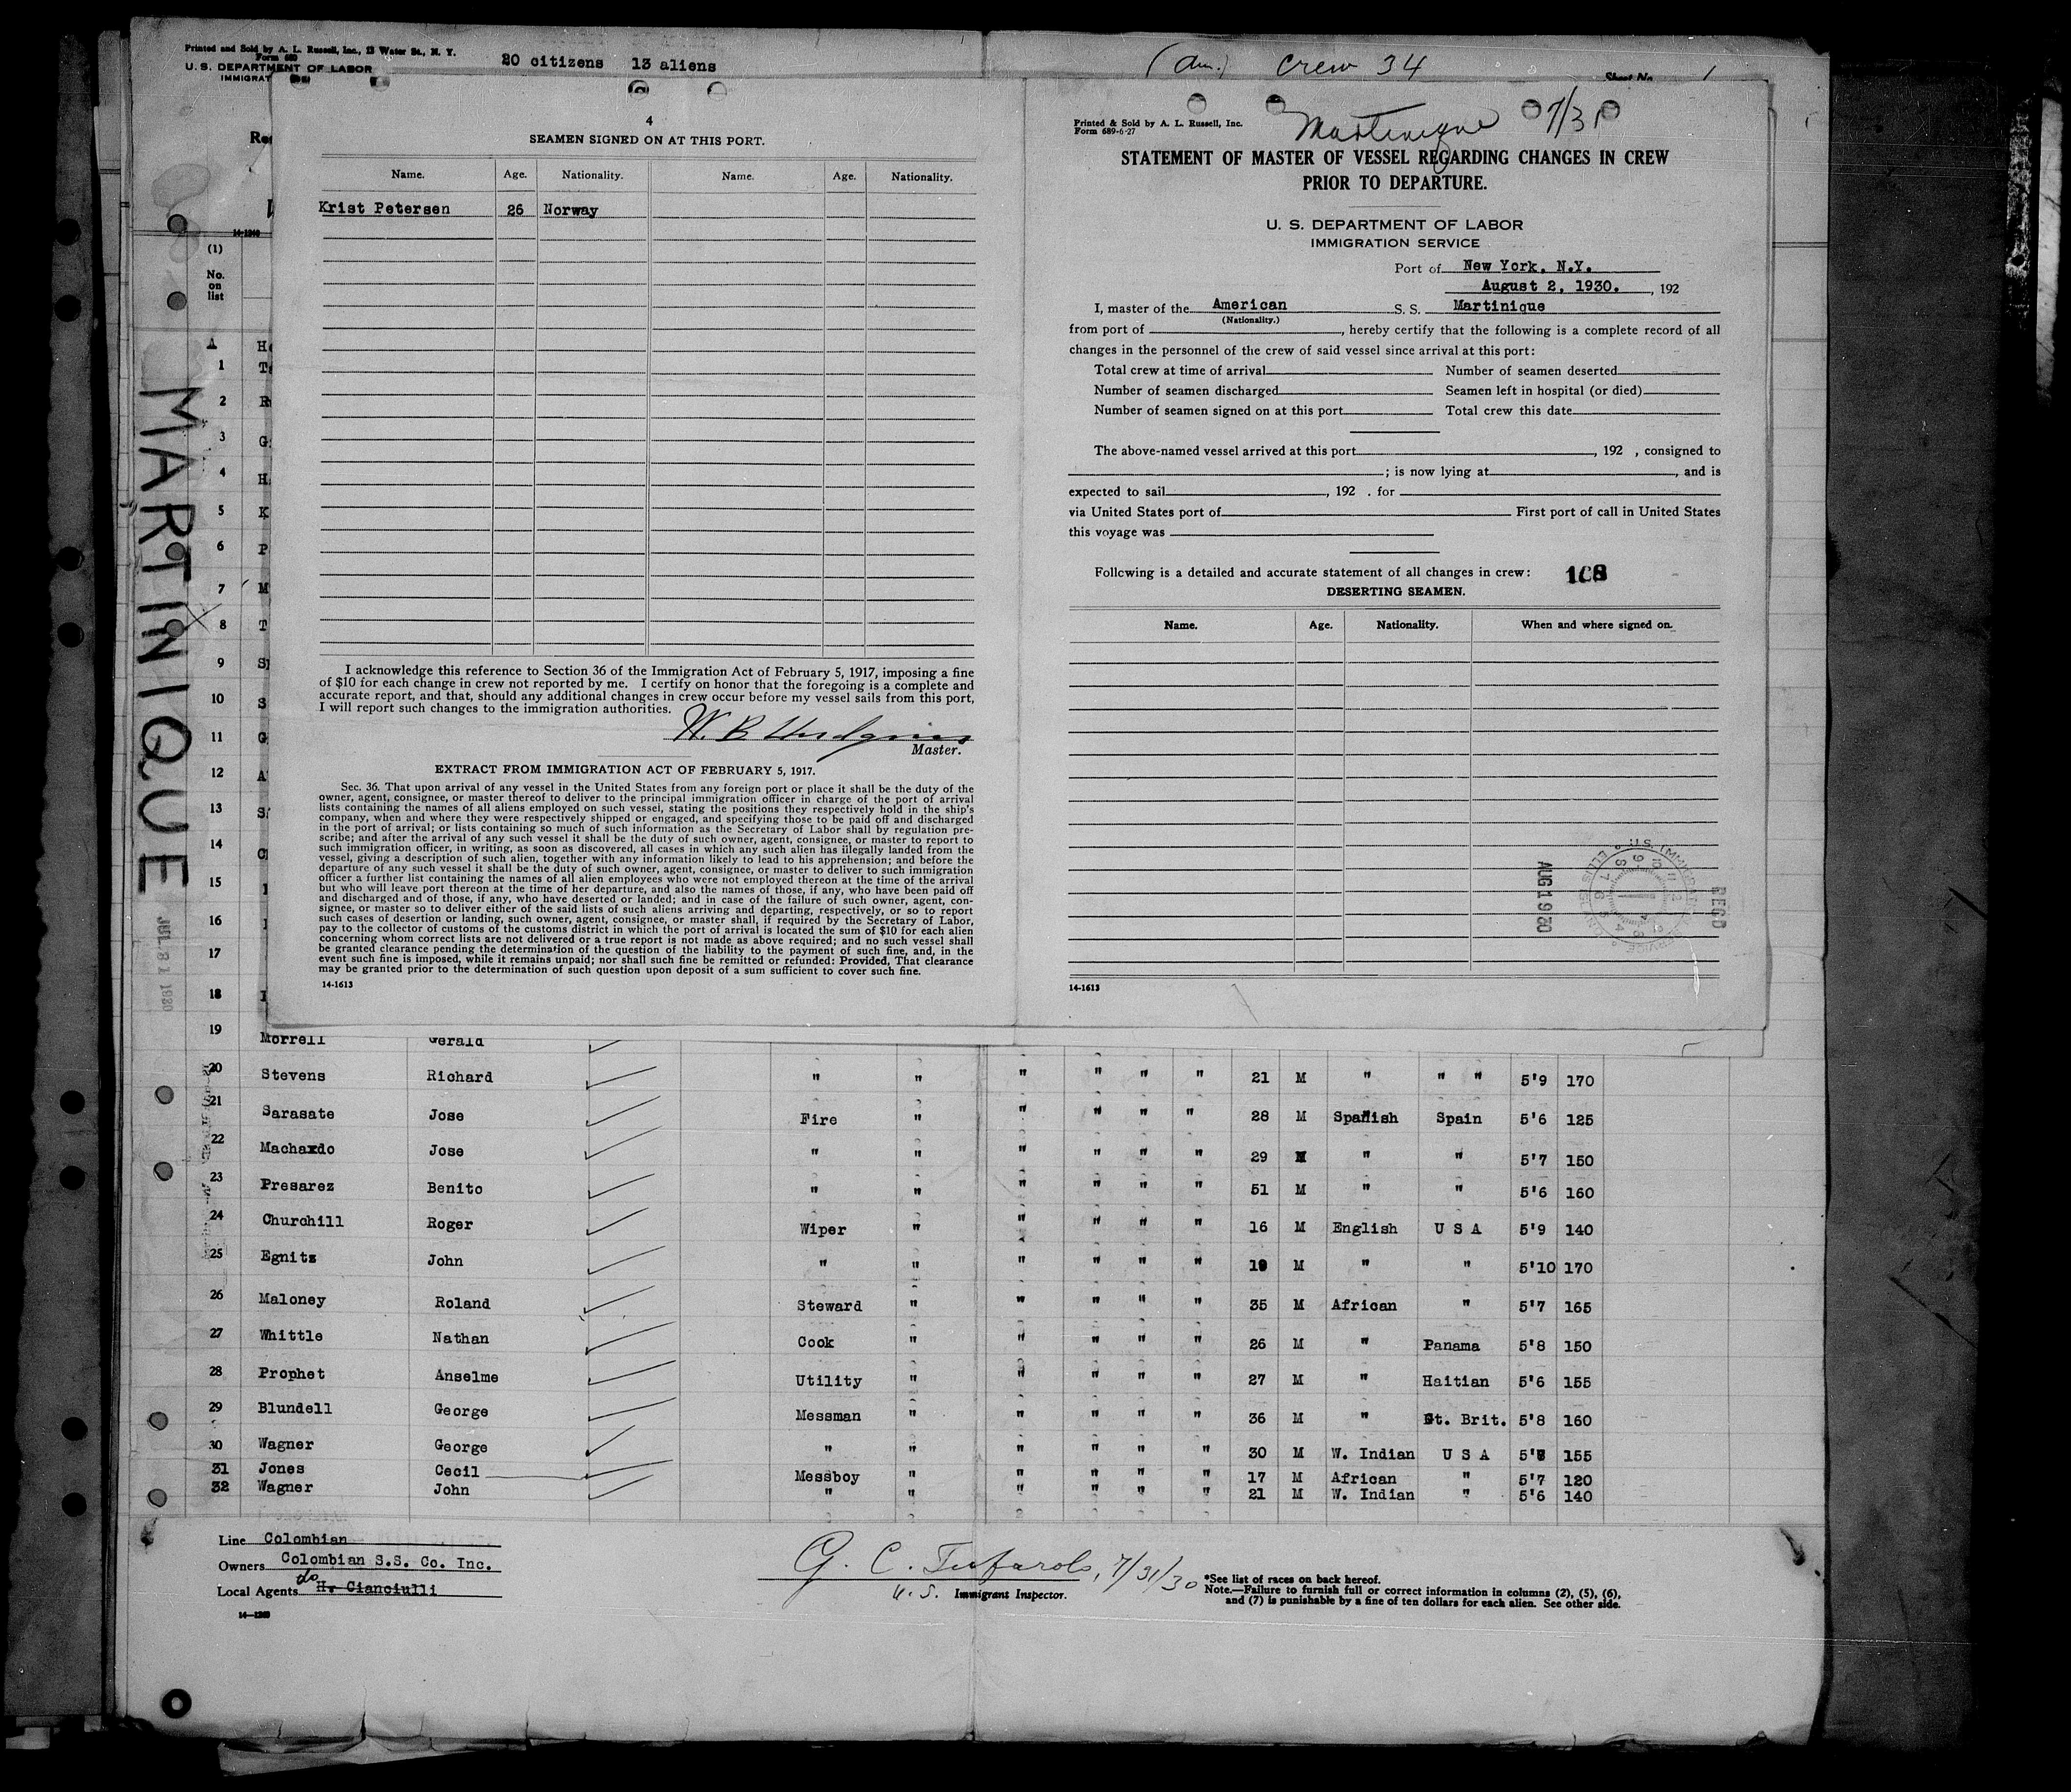 Printed and Sold by A. L. Russell, Inc., 13 Water St., N. Y.
Form 680
U. S. DEPARTMENT OF LABOR
IMMIGRAT
20 citizens 13 aliens
(Am.) Crew 34
Sheet No. 1
MARTINIQUE
JUL 31 1930
14-1240
(1)
No.
on
list
4
SEAMEN SIGNED ON AT THIS PORT.
Name. Age. Nationality. Name. Age. Nationality.
Krist Petersen 26 Norway
I acknowledge this reference to Section 36 of the Immigration Act of February 5, 1917, imposing a fine
of $10 for each change in crew not reported by me. I certify on honor that the foregoing is a complete and
accurate report, and that, should any additional changes in crew occur before my vessel sails from this port,
I will report such changes to the immigration authorities.
W. B. Hudgins
Master.
EXTRACT FROM IMMIGRATION ACT OF FEBRUARY 5, 1917.
Sec. 36. That upon arrival of any vessel in the United States from any foreign port or place it shall be the duty of the
owner, agent, consignee, or master thereof to deliver to the principal immigration officer in charge of the port of arrival
lists containing the names of all aliens employed on such vessel, stating the positions they respectively hold in the ship's
company, when and where they were respectively shipped or engaged, and specifying those to be paid off and discharged
in the port of arrival; or lists containing so much of such information as the Secretary of Labor shall by regulation pre-
scribe; and after the arrival of any such vessel it shall be the duty of such owner, agent, consignee, or master to report to
such immigration officer, in writing, as soon as discovered, all cases in which any such alien has illegally landed from the
vessel, giving a description of such alien, together with any information likely to lead to his apprehension; and before the
departure of any such vessel it shall be the duty of such owner, agent, consignee, or master to deliver to such immigration
officer a further list containing the names of all alien employees who were not employed thereon at the time of the arrival
but who will leave port thereon at the time of her departure, and also the names of those, if any, who have been paid off
and discharged and of those, if any, who have deserted or landed; and in case of the failure of such owner, agent, con-
signee, or master so to deliver either of the said lists of such aliens arriving and departing, respectively, or so to report
such cases of desertion or landing, such owner, agent, consignee, or master shall, if required by the Secretary of Labor,
pay to the collector of customs of the customs district in which the port of arrival is located the sum of $10 for each alien
concerning whom correct lists are not delivered or a true report is not made as above required; and no such vessel shall
be granted clearance pending the determination of the question of the liability to the payment of such fine, and, in the
event such fine is imposed, while it remains unpaid; nor shall such fine be remitted or refunded: Provided, That clearance
may be granted prior to the determination of such question upon deposit of a sum sufficient to cover such fine.
14-1613
Printed & Sold by A. L. Russell, Inc.
Form 689-6-27
Martinique 7/31
STATEMENT OF MASTER OF VESSEL REGARDING CHANGES IN CREW
PRIOR TO DEPARTURE.
U. S. DEPARTMENT OF LABOR
IMMIGRATION SERVICE
Port of New York, N.Y.
August 2, 1930. , 192
I, master of the American S. S. Martinique
(Nationality.)
from port of , hereby certify that the following is a complete record of all
changes in the personnel of the crew of said vessel since arrival at this port:
Total crew at time of arrival Number of seamen deserted
Number of seamen discharged Seamen left in hospital (or died)
Number of seamen signed on at this port Total crew this date
The above-named vessel arrived at this port , 192 , consigned to
; is now lying at , and is
expected to sail , 192 . for
via United States port of First port of call in United States
this voyage was
Following is a detailed and accurate statement of all changes in crew: 108
DESERTING SEAMEN.
Name. Age. Nationality. When and where signed on.
AUG 1 1930
REC'D
14-1613
1
2
3
4
5
6
7
8
9
10
11
12
13
14
15
16
17
18
19 Morrell Gerald
20 Stevens Richard " " " " " " 21 M " " " 5'9 170
21 Sarasate Jose Fire " " " " " 28 M Spanish Spain 5'6 125
22 Machardo Jose " " " " " " 29 M " " 5'7 150
23 Presarez Benito " " " " " " 51 M " " 5'6 160
24 Churchill Roger Wiper " " " " " 16 M English U S A 5'9 140
25 Egnitz John " " " " " " 19 M " " 5'10 170
26 Maloney Roland Steward " " " " " 35 M African " 5'7 165
27 Whittle Nathan Cook " " " " " 26 M " Panama 5'8 150
28 Prophet Anselme Utility " " " " " 27 M " Haitian 5'6 155
29 Blundell George Messman " " " " " 36 M " Gt. Brit. 5'8 160
30 Wagner George " " " " " " 30 M W. Indian U S A 5'8 155
31 Jones Cecil Messboy " " " " " 17 M African " 5'7 120
32 Wagner John " " " " " " 21 M W. Indian " 5'6 140
Line Colombian
Owners Colombian S.S. Co. Inc.
Local Agents do H. Cianciulli
14-1240
G. C. Tufarolo, 7/31/30
U. S. Immigrant Inspector.
*See list of races on back hereof.
Note.—Failure to furnish full or correct information in columns (2), (5), (6),
and (7) is punishable by a fine of ten dollars for each alien. See other side.